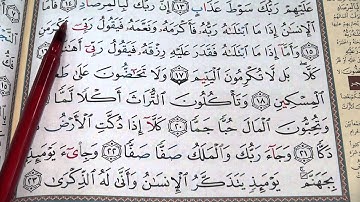 عَلَيْهِمْ رَبُّكَ سَوْطَ عَذَابٍ ١٣ إِنَّ رَبَّكَ لَبِالْمِرْصَادِ ١٤ فَأَمَّا
ٱلْإِنسَٰنُ إِذَا مَا ٱبْتَلَىٰهُ رَبُّهُۥ فَأَكْرَمَهُۥ وَنَعَّمَهُۥ فَيَقُولُ رَبِّيٓ أَكْرَمَنِ
١٥ وَأَمَّآ إِذَا مَا ٱبْتَلَىٰهُ فَقَدَرَ عَلَيْهِ رِزْقَهُۥ فَيَقُولُ رَبِّيٓ أَهَٰنَنِ
١٦ كَلَّا بَل لَّا تُكْرِمُونَ ٱلْيَتِيمَ ١٧ وَلَا تَحَٰٓضُّونَ عَلَىٰ
ٱلْمِسْكِينِ ١٨ وَتَأْكُلُونَ ٱلتُّرَاثَ أَكْلًا لَّمًّا
وَتُحِبُّونَ ٱلْمَالَ حُبًّا جَمًّا ٢٠ كَلَّآ إِذَا دُكَّتِ ٱلْأَرْضُ
٢١ وَجَآءَ رَبُّكَ وَٱلْمَلَكُ صَفًّا صَفًّا ٢٢ وَجِا۟يٓءَ يَوْمَئِذٍۭ
بِجَهَنَّمَ يَوْمَئِذٍ يَتَذَكَّرُ ٱلْإِنسَٰنُ وَأَنَّىٰ لَهُ ٱلذِّكْرَىٰ ٢٣